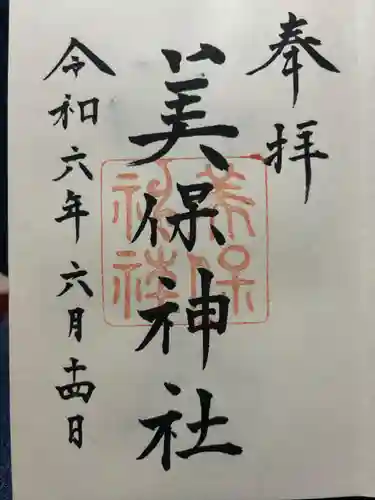 奉拝
美保神社
美保
神社
令和六年六月十四日